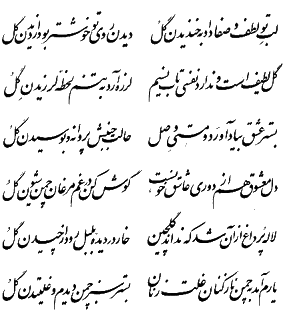 لب تو لطف و صفا داد به خندیدن گل دیدن روی تو خوشتر بود از دیدن گل
گل لطیف است و ندارد نفسی تاب نسیم لرزه آرد به تنم لحظهٔ لرزیدن گل
بستر عشق بیاد آورد و مستی وصل حالت جنبش پروانه و بوسیدن گل
دل معشوق هم از دوری عاشق خونست گوش کن در غم مرغان چمن شیون گل
لاله پرداغ از آن شد که نداند گلچین خار در دیده بلبل رود از چیدن گل
یارم آمد به چمن نازکنان غلت زنان بستر سبز چمن دیدم و غلتیدن گل